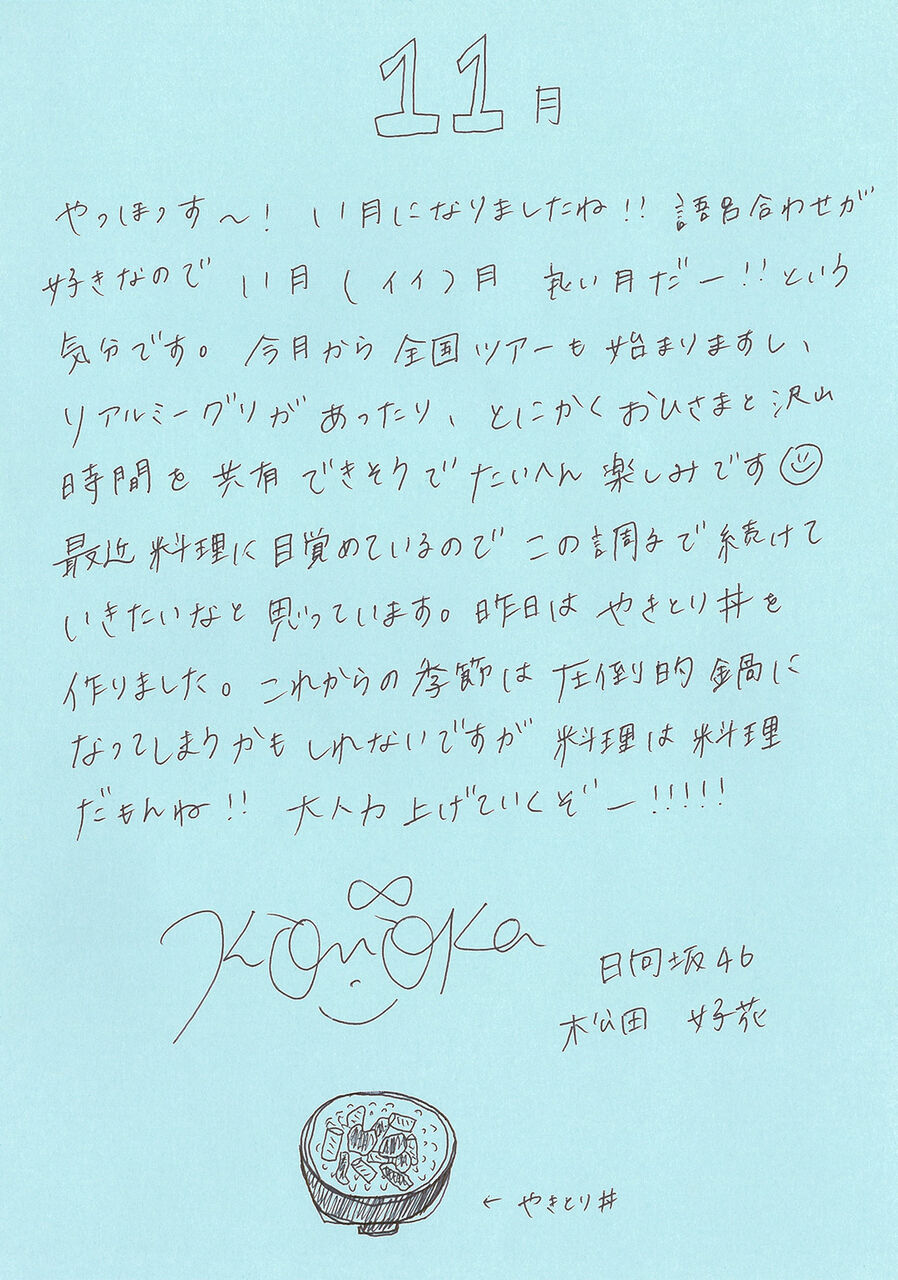 11月
やっほっす〜! 11月になりましたね!! 語呂合わせが
好きなので 11月(イイ)月 良い月だー!!という
気分です。今月から 全国ツアーも始まりますし、
リアルミーグリがあったり、とにかくおひさまと沢山
時間を共有できそうでたいへん楽しみです☺
最近料理に目覚めているのでこの調子で続けて
いきたいなと思っています。昨日は やきとり丼を
作りました。これからの季節は圧倒的鍋に
なってしまうかもしれないですが 料理は料理
だもんね!! 女子力上げていくぞー!!!!!
Konoka
日向坂46
松田 好花
← やきとり丼